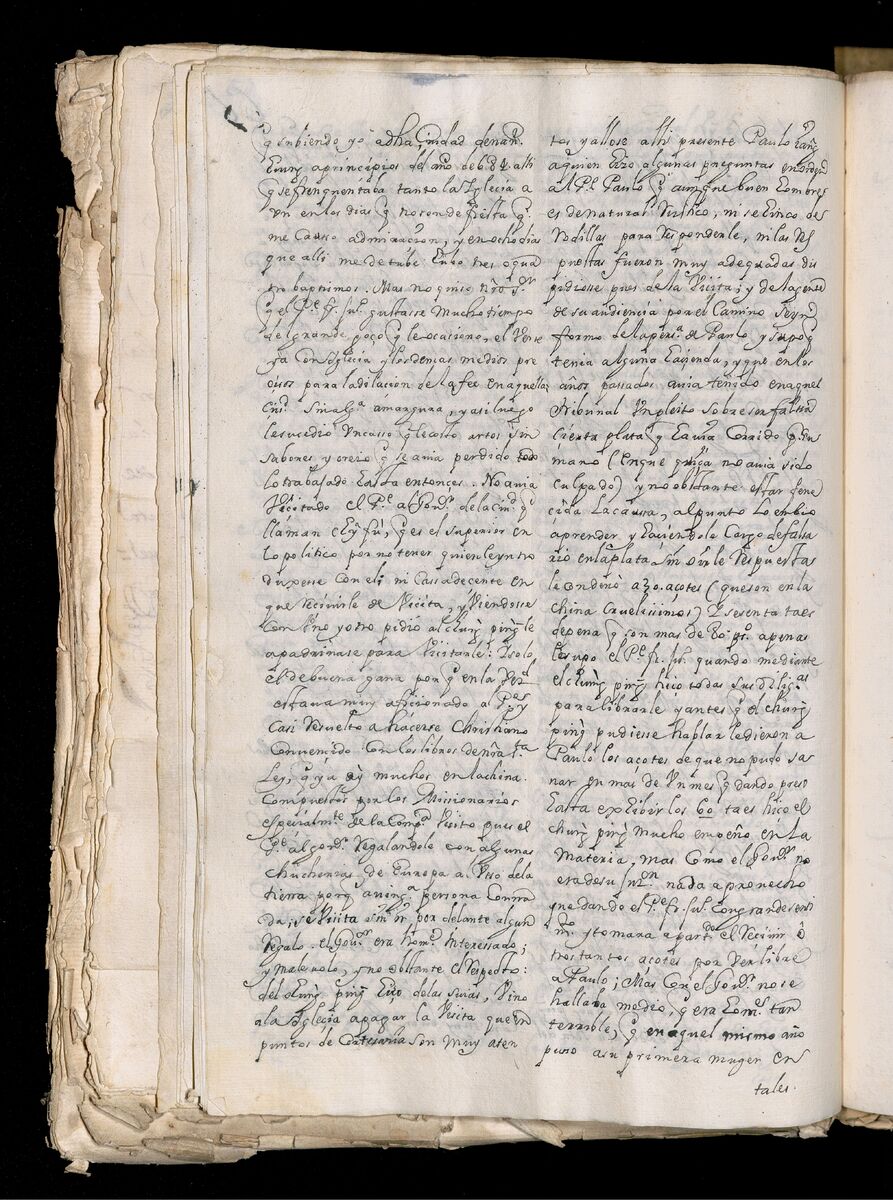 q̃ subiendo yo a dha Ciudad de nan
Eiung a principios del año de 684. alli
q̃ se frenquentaba tanto la Iglecia a
Vn en los dias q̃ no son de fiesta q̃
me Causo admiracion, y en ocho dias
que alli me detube Eubo tres o qua
tro baptismos. Mas no quiso nr̃o S.r
q̃ el P.e fr. Ju.º gustasse mucho tiempo
del grande goço q̃ le ocationo, el Verse
ya Con Iglecia y los demas medios pre
cisos para la dilacion de la fee en aquella
Ciu.d sin alg.a amargura, y asi luego
le sucedio Vn casso q̃ le costo artos sin
sabores y creio q̃ se auia perdido todo
lo trabajado Easta entonces. No auia
Vicitado el P.e al Gou.r de la ciu.d q̃
llaman chy fú, q̃ es el superior en
lo politico por no tener quien le yntro
duxesse Con el; ni Cassa decente en
que recivirle de Vicita, y Viendosse
Con Vno y otro pidio al chung ping le
apadrinase para Vicitarle: Yçolo
el de buena gana por q̃
estaua muy afficionado a P.es y
Casi resuelto a hacerse Christiano
Convencido Con los libros de nr̃a s.ta
Ley, q̃ ya ay muchos en la china.
Compuestos por los Missionarios
especialm.te de la Comp.a Visito pues el
P.e al gou.r Regalandole con algunas
chucherias de Europa al Vso de la
tierra porq̃ a ning.a persona Conora
da, se Vicita sin ir por delante algun
Regalo. el Gou.r era hom.e Interessado;
y maleuolo, y no obstante el respecto:
del Eung ping Eiço de las suias, Vino
a la Iglecia a pagar la Vicita que en
puntos de Cortesania son muy aten
tos y allose alli presente Paulo
a quien Eizo algunas preguntas
al P.e Paulo q̃ aunque buen Eombre
es de natural rustico, ni se Einco de
Rodillas para responderle, ni las res
puestas fueron muy adequadas dis
pidiosse pues de la Vicita; y de la gente
de su audiencia por el Camino se yn
formo de la pers.a de Paulo y supo q̃
tenia alguna Eazienda, y que en los
años passados auia tenido en aquel
Tribunal Vn pleito sobre ser falsa
cierta plata q̃ Eauia Corrido por su
mano (en que quiça no auia sido
culpado) y no obstante estar fene
cida la caussa, al punto lo embio
a prender y Eaciendole Cargo de falsa
rio en la plata sin oirle respuestas
le condenò a 30. açotes (que son en la
china Cruelissimos) Y sesenta taes
de pena q̃ son mas de 80. ps. apenas
lo supo el P.e fr. Ju.º quando mediante
el chung ping hiço todas sus dilig.as
para librarle y antes q̃ el chung
ping pudiesse hablar le dieron a
Paulo los açotes de que no pudo sa
nar en mas de Vn mes q̃dando preso
Easta exxibir los 60 taes hiço el
chung ping mucho empeño en la
materia, mas Como el Gou.r no
era de su nada a prouecho
quedando el P.e fr. Ju.º Con grande senti
m.to y tomara a part.do el recivir o
tros tantos açotes por ver libre
a Paulo; Mas Con el Gou.r no se
hallaua medio, q̃ era Eom.e tan
terrible, q̃ en aquel mismo año
puso a su primera muger en
tales.